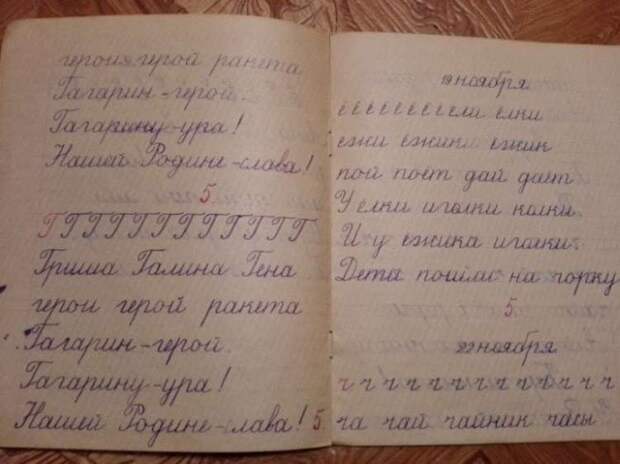 герои герой ракета
Гагарин - герой.
Гагарину - ура!
Нашей Родине - слава!
5
Г Г Г Г Г Г Г Г Г Г Г
Гриша Галина Гена
герои герой ракета
Гагарин - герой.
Гагарину - ура!
Нашей Родине - слава! 5
19 ноября
ё ё ё ё ё ё ё ели елки
ежи ежики ежик
пой поёт дай даёт
У елки иголки колки.
И у ежика иголки.
Дета пошли на горку
5.
22 ноября
ч ч ч ч ч ч ч ч ч ч ч ч ч
ча чай чайник часы